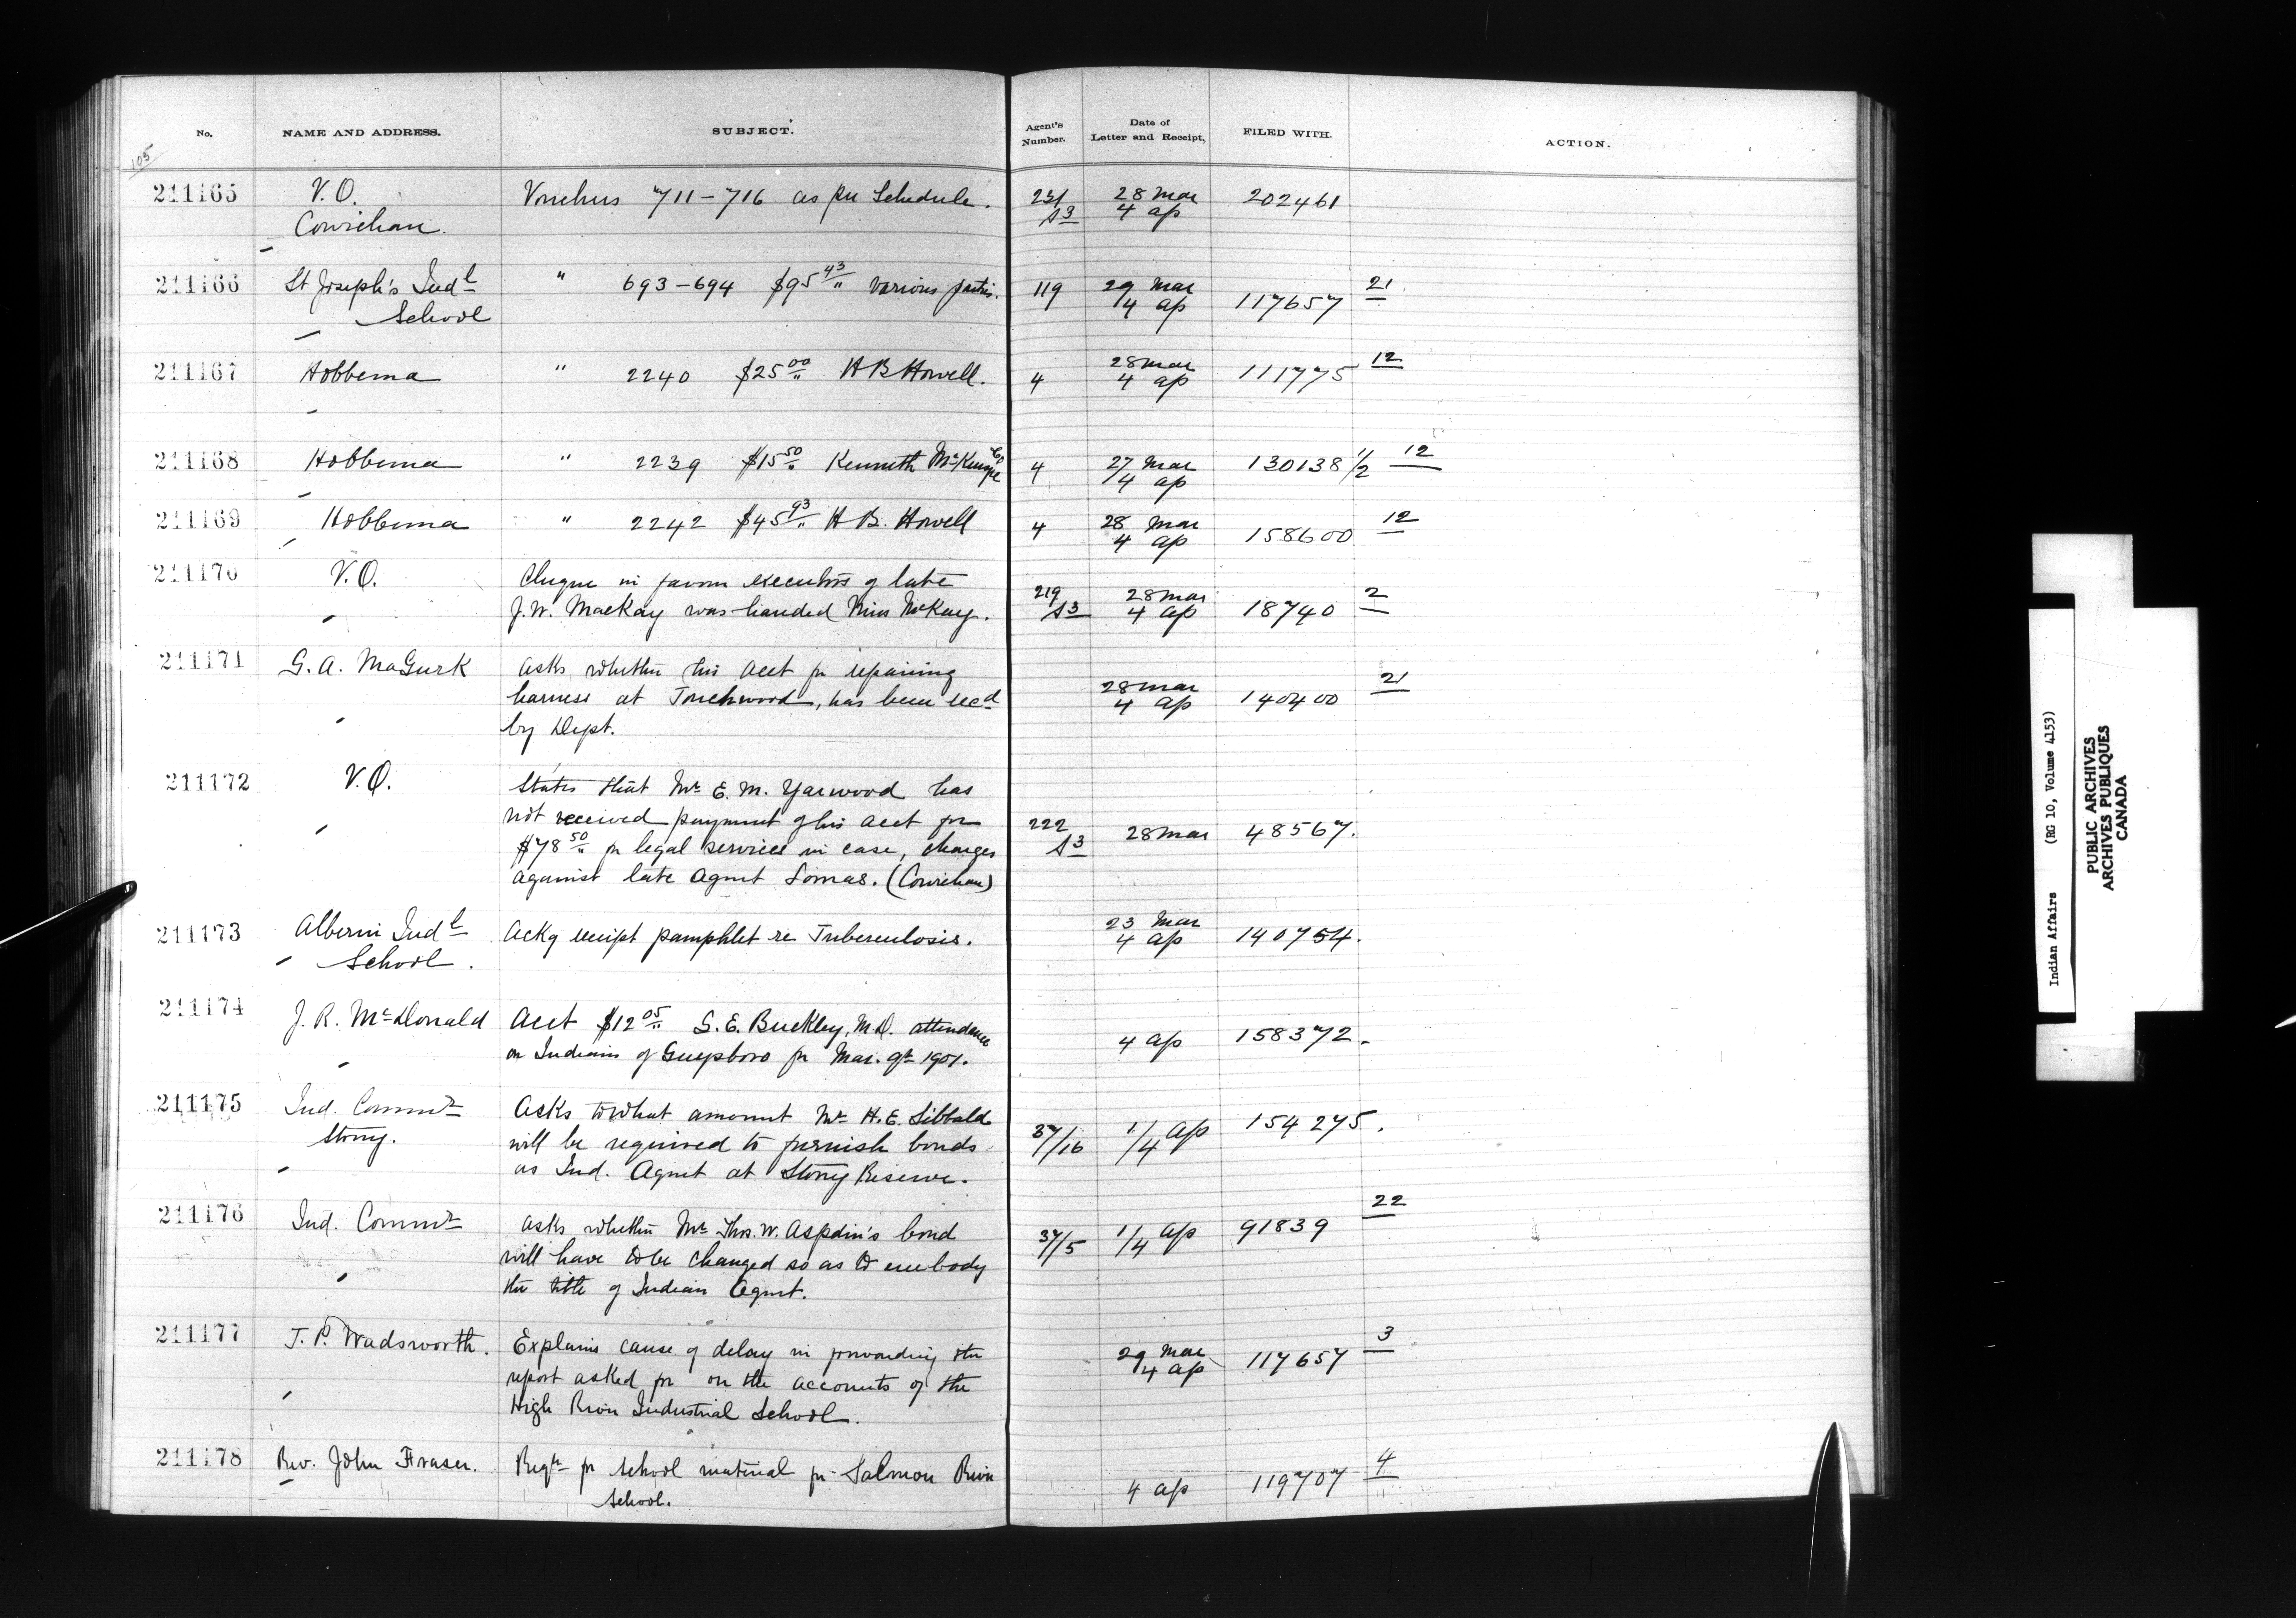 No. NAME AND ADDRESS. SUBJECT. Agent's Number. Date of Letter and Receipt. FILED WITH. ACTION.
105
211165 V.O. Vouchers 711-716 as per Schedule. 231 28 Mar 202461
Cowichan. A3 4 ap
211166 St Joseph's Indl " 693-694 $95 43/" various parties. 119 29 Mar 117657 21
School 4 ap
211167 Hobbema " 2240 $25 00/" H B Howell. 4 28 Mar 111775 12
4 ap
211168 Hobbema " 2239 $15 50/" Kenneth McKenzie Co 4 27 Mar 130138 1/2 12
4 ap
211169 Hobbema " 2242 $45 93/" H B. Howell 4 28 Mar 158600 12
4 ap
211170 V.O. Cheque in favour executors of late 219 28 Mar 18740 2
J.W. MacKay was handed Miss McKay. A3 4 ap
211171 G. A. MaGurk Asks whether his acct for repairing 28 Mar 140400 21
harness at Touchwood, has been recd 4 ap
by Dept.
211172 V.O. States that Mr E. M. Yarwood has
not received payment of his acct for 222 28 Mar 48567.
$78 50/" for legal services in case, charges A3
against late Agent Lomas. (Cowichan)
211173 Alberni Indl Ackg receipt pamphlet re Tuberculosis. 23 Mar 140754.
School. 4 ap
211174 J. R. McDonald Acct $12 05/" S. E. Buckley, M.D. attendance 4 ap 158372.
on Indians of Guysboro for Mar. qr 1901.
211175 Ind. Commr Asks to what amount Mr H. E. Sibbald 37/16 1/4 ap 154275.
Stony. will be required to furnish bonds
as Ind. Agent at Stony Reserve.
211176 Ind. Commr Asks whether Mr Thos. W. Aspdin's bond 37/5 1/4 ap 91839 22
will have to be changed so as to embody
the title of Indian Agent.
211177 T. P. Wadsworth. Explains cause of delay in forwarding the 29 Mar 117657 3
report asked for on the accounts of the 4 ap
High River Industrial School.
211178 Rev. John Fraser. Reqn for school material for Salmon River 4 ap 119707 4
School.
Indian Affairs (RG 10, Volume 4153)
PUBLIC ARCHIVES
ARCHIVES PUBLIQUES
CANADA